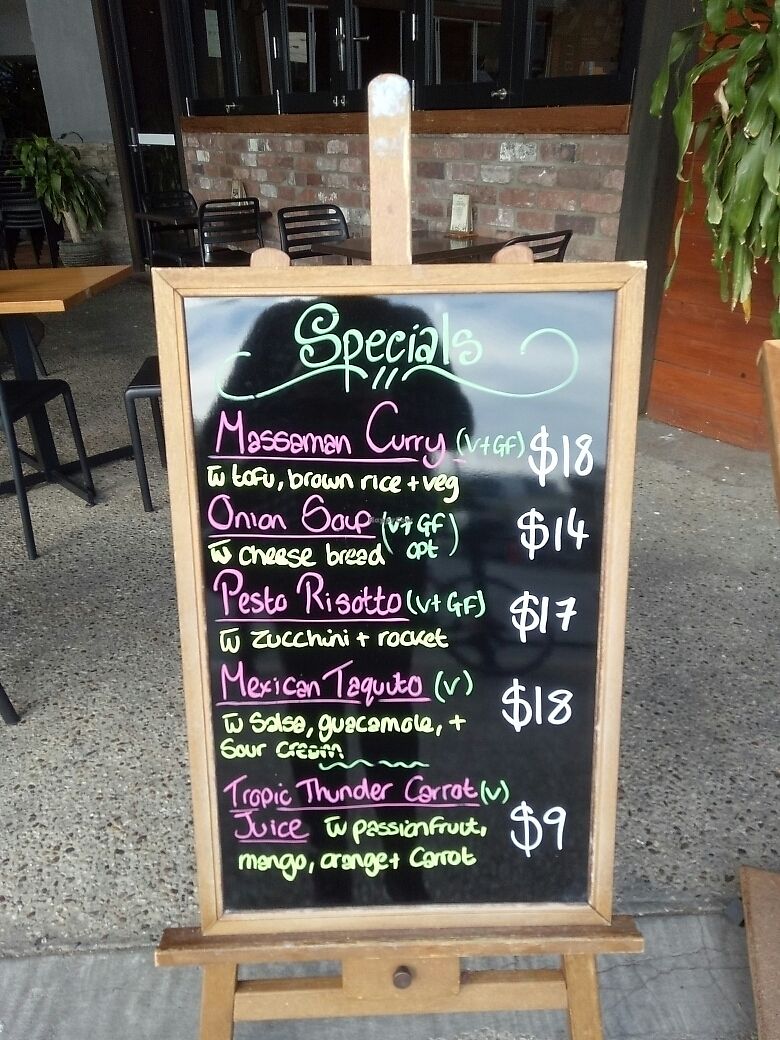 Specials
Massaman Curry (V+GF) $18
w tofu, brown rice + veg
Onion Soup (V+GF opt) $14
w cheese bread
Pesto Risotto (V+GF) $17
w zucchini + rocket
Mexican Taquito (V) $18
w Salsa, guacamole, +
Sour cream
Tropic Thunder Carrot (V)
Juice w passionfruit, $9
mango, orange + Carrot